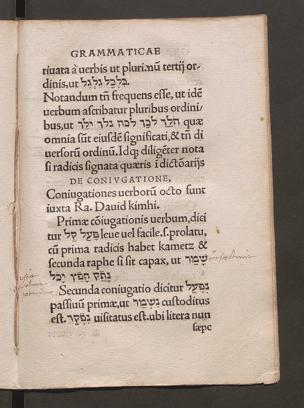 GRAMMATICAE
riuata à uerbis ut plurimũ tertij or-
dinis, ut
Notandum tñ frequens esse, ut idẽ
uerbum ascribatur pluribus ordini
bus, ut quæ
omnia sũt eiusdẽ significati, & tñ di
uersorũ ordinũ. Idq; diligẽter nota
si radicis signata quæris ĩ dictõarijs
DE CONIVGATIONE,
Coniugationes uerborũ octo sunt
iuxta Ra. Dauid kimhi.
Primæ cõiugationis uerbum, dici
tur פָּעַל קַל leue uel facile. s. prolatu,
cũ prima radicis habet kametz &
secunda raphe si sit capax, ut שָׁמַר

Secunda coniugatio dicitur נִפְעַל
passiuũ primæ, ut נִשְׁמַר custoditus
est. נִפְקַד uisitatus est. ubi litera nun
sæpe